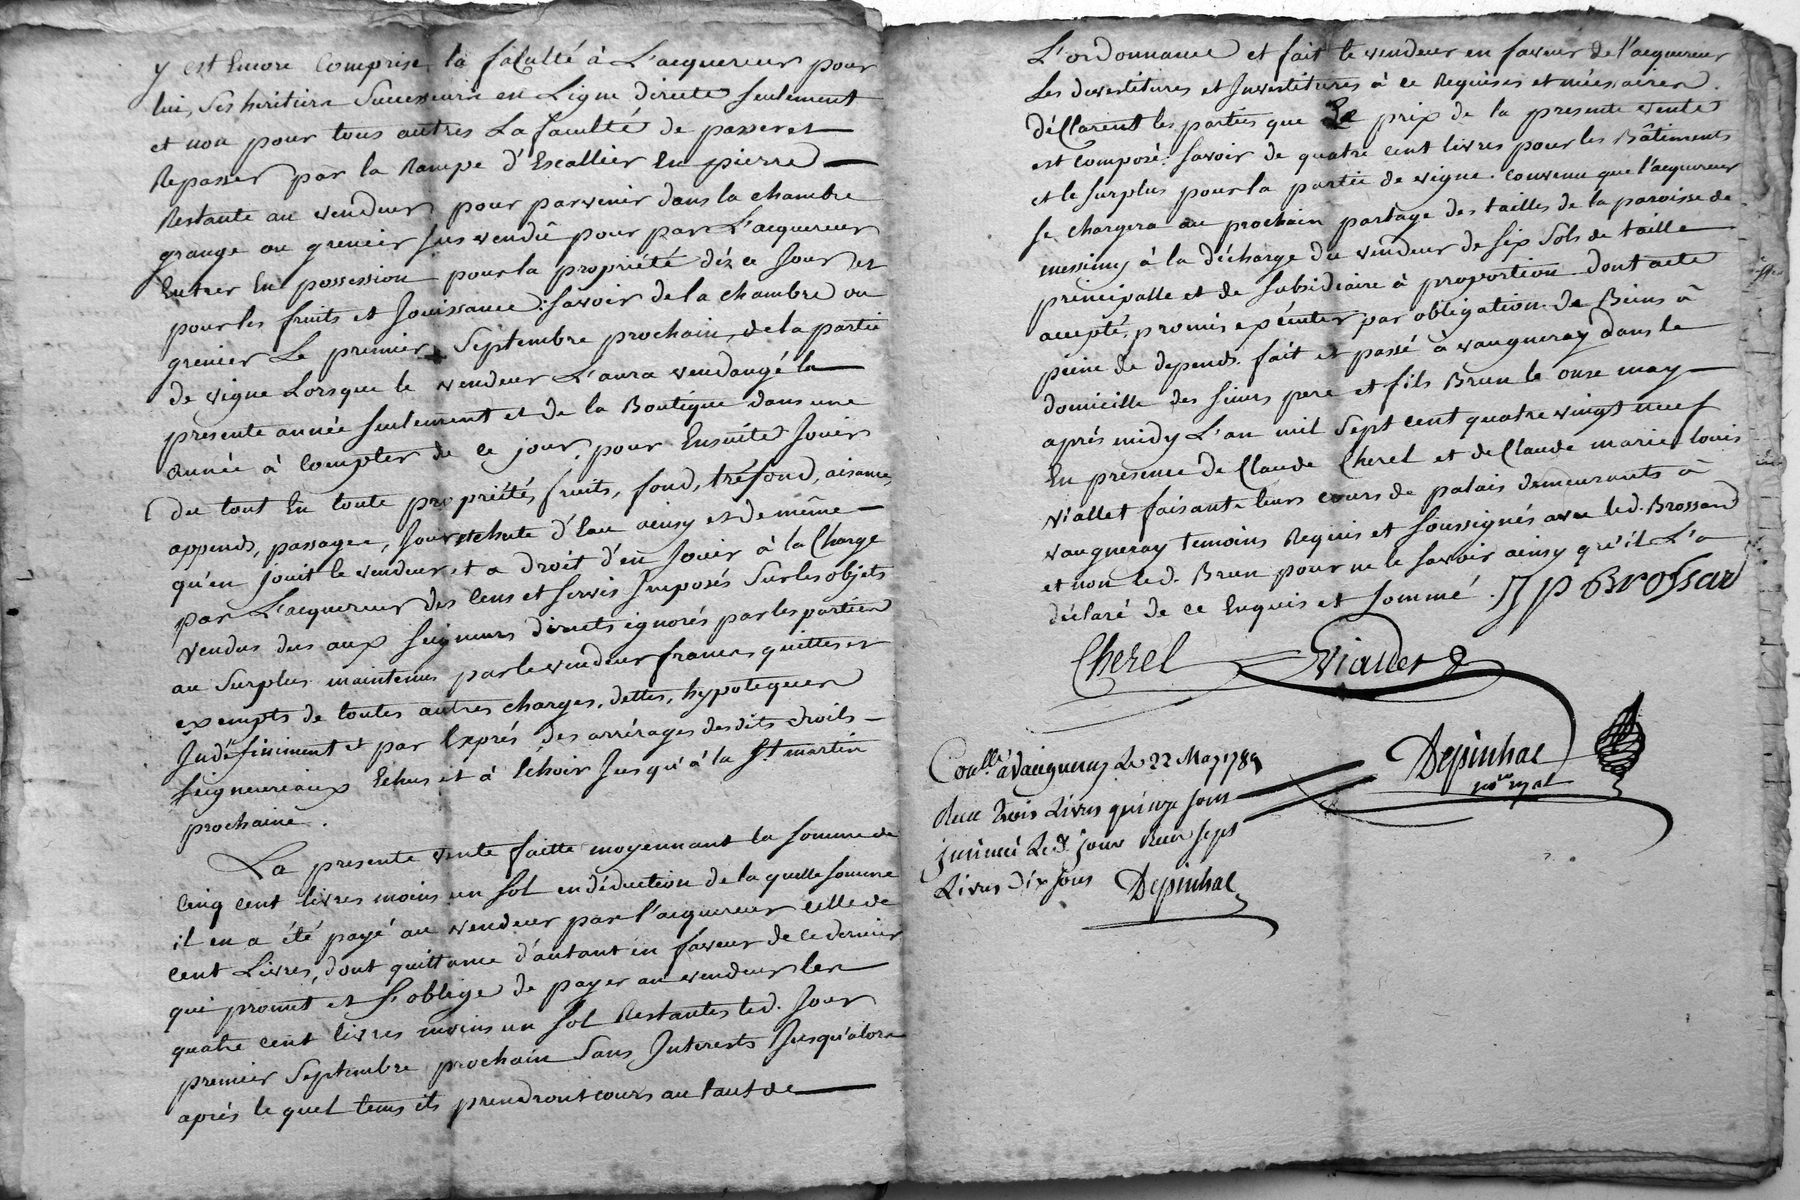 y est Encore Comprise la faculté à L'acquereur pour
lui, Ses heritiers Successeurs en Ligne directe seulement
et non pour tous autres La faculté de passer et
Repasser par la Rampe d'Escallier En pierre
Restante au vendeur pour parvenir dans la chambre
grange ou grenier sus vendû pour par L'acquereur
Entrer En possession pour la propriété déz ce Jour et
pour les fruits et Jouissance: savoir de la chambre ou
grenier Le premier Septembre prochain, de la partie
de vigne Lorsque le vendeur L'aura vendangé la
presente année seulement et de la Boutique dans une
année à Compter de ce jour, pour Ensuite Jouir
du tout En toute propriété, fruits, fond, tréfond, aisance,
appends, passages, Jour et chute d'Eau ainsy et de même
qu'en jouit le vendeur et a droit d'en Jouir à la Charge
par L'acquereur des Cens et servis Imposés Sur les objets
vendus dus aux seigneurs directs ignorés par les parties
au Surplus maintenus par le vendeur francs, quittes et
exempts de toutes autres charges, dettes, hypoteques
Indéfiniment et par Exprés des arrérages desdits droits
seigneuriaux Echus et à Echoir Jusqu'à la St martin
prochaine.
La presente vente faitte moyennant la somme de
Cinq cent livres moins un sol en déduction de la quelle somme
il en a été payé au vendeur par l'acquereur celle de
cent Livres, dont quittance d'autant en faveur de ce dernier
qui promet et s'oblige de payer au vendeur les
quatre cent livres moins un sol Restantes led. Jour
premier Septembre prochain Sans Interests Jusqu'alors
aprés le quel tems ils prendront cours au taux de
L'ordonnance et fait le vendeur en faveur de l'acquereur
Les devestitures et Investitures à ce Requises et nécessaires.
déClarent les parties que Le prix de la presente vente
est Composé: savoir de quatre cent livres pour les Bâtiments
et le surplus pour la partie de vigne. Convenu que l'acquereur
se chargera au prochain partage des tailles de la paroisse de
messimy à la décharge du vendeur de six Sols de taille
principalle et de subsidiaire à proportion dont acte
accepté, promis executer par obligation de Biens à
peine de depends. fait et passé à vaugneray dans le
domicille des sieurs pere et fils Brun le onze may
aprés midy L'an mil sept cent quatre vingt neuf
En presence de Claude Cherel et de Claude marie louis
viallet faisants leurs cours de palais demeurants à
vaugneray temoins Requis et soussignés avec led. Brossard
et non led. Brun pour ne le savoir ainsy qu'il L'a
déclaré de ce Enquis et sommé. JP Brossard
Cherel Viallet
Depinhac
nore royal
Conllé à Vaugneray Le 22 May 1789
Recu trois Livres quinze sous
insinué Led. jour Recu sept
Livres dix sous Depinhac